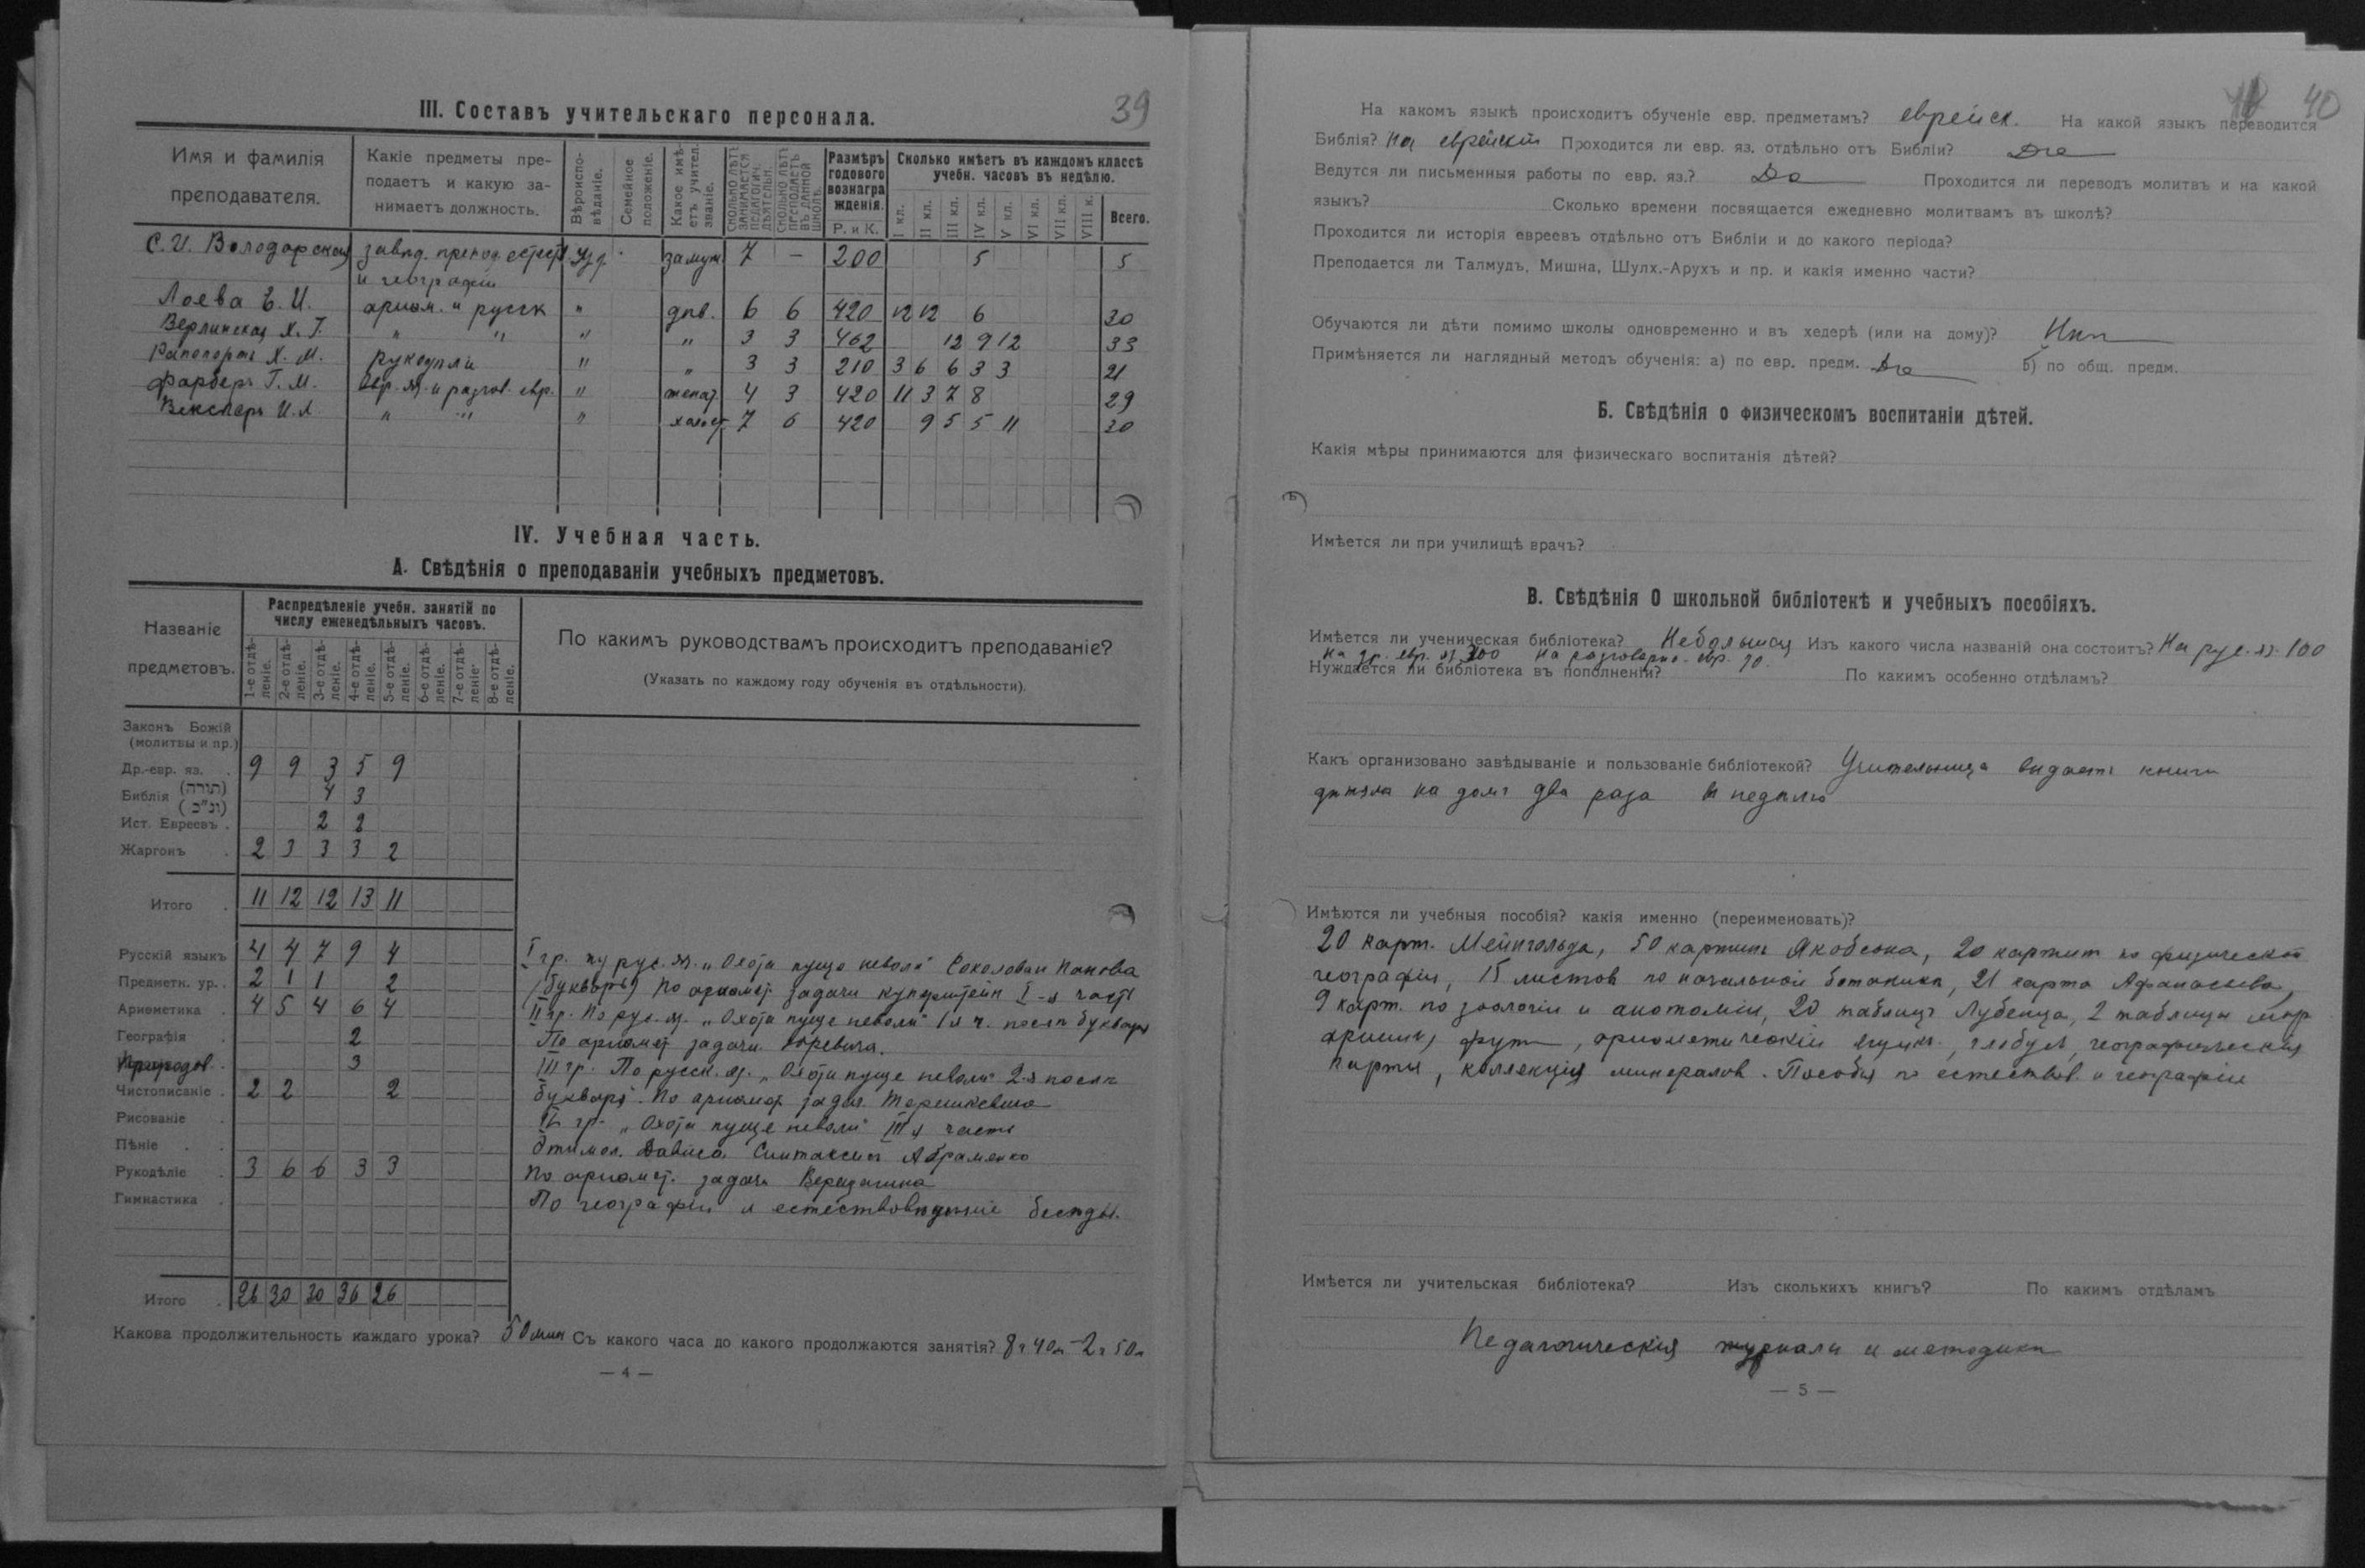 39
III. Составъ учительскаго персонала.
Имя и фамилія преподавателя.
Какіе предметы преподаетъ и какую занимаетъ должность.
Вѣроисповѣданіе.
Семейное положеніе.
Какое имѣетъ учител. званіе.
Сколько лѣтъ занимается педагогич. дѣятельн.
Сколько лѣтъ преподаетъ въ данной школѣ.
Размѣръ годового вознагражденія.
Р. и К.
Сколько имѣетъ въ каждомъ классѣ учебн. часовъ въ недѣлю.
I кл. II кл. III кл. IV кл. V кл. VI кл. VII кл. VIII к. Всего.
С. И. Володарская завѣд. препод. естест. Іуд. замуж 7 — 200 5 5
и географіи
Лоева Б. И. ариѳм. и русск " дѣв. 6 6 420 12 12 6 30
Верлинская Х. Г. " " " " 3 3 462 12 9 12 33
Рапопортъ Х. М. рукодѣліе " " 3 3 210 3 6 6 3 3 21
Фарберъ Г. М. евр. яз. и разгов. евр. " женат. 4 3 420 11 3 7 8 29
Векслеръ И. Л. " " " холост. 7 6 420 9 5 5 11 30
IV. Учебная часть.
А. Свѣдѣнія о преподаваніи учебныхъ предметовъ.
Названіе предметовъ.
Распредѣленіе учебн. занятій по числу еженедѣльныхъ часовъ.
1-е отдѣленіе. 2-е отдѣленіе. 3-е отдѣленіе. 4-е отдѣленіе. 5-е отдѣленіе. 6-е отдѣленіе. 7-е отдѣленіе. 8-е отдѣленіе.
По какимъ руководствамъ происходитъ преподаваніе?
(Указать по каждому году обученія въ отдѣльности).
Законъ Божій
(молитвы и пр.)
Др.-евр. яз. 9 9 3 5 9
Библія (תורה) 4 3
(נ"כ)
Ист. Евреевъ 2 2
Жаргонъ 2 3 3 3 2
Итого 11 12 12 13 11
Русскій языкъ 4 4 7 9 4
Предметн. ур. 2 1 1 2
Ариѳметика 4 5 4 6 4
Географія 2
Природов. 3
Чистописаніе 2 2 2
Рисованіе
Пѣніе
Рукодѣліе 3 6 6 3 3
Гимнастика
Итого 26 30 30 36 26
I гр. По рус. яз. „Охота пуще неволи" Соколован Панова
(букварь) По ариѳмет. задачи Куперштейн I-я часть
II гр. По рус. яз. „Охота пуще неволи" 1я ч. послѣ букваря
По ариѳмет задачи
III гр. По русск. яз. „Охота пуще неволи" 2-я послѣ
букваря. По ариѳмет задач. Терешкевича
IV гр. „Охота пуще неволи" III я часть
Этимол. Дависа Синтаксисъ Абраменко
По ариѳмет. задачи Верещагина
По географіи и естествовѣдѣнію бесѣды.
Какова продолжительность каждаго урока? 50 мин Съ какого часа до какого продолжаются занятія? 8 ч 40 м – 2 ч 50 м
— 4 —
40
На какомъ языкѣ происходитъ обученіе евр. предметамъ? еврейск. На какой языкъ переводится
Библія? На еврейскій Проходится ли евр. яз. отдѣльно отъ Библіи? Да
Ведутся ли письменныя работы по евр. яз.? Да Проходится ли переводъ молитвъ и на какой
языкъ? Сколько времени посвящается ежедневно молитвамъ въ школѣ?
Проходится ли исторія евреевъ отдѣльно отъ Библіи и до какого періода?
Преподается ли Талмудъ, Мишна, Шулх.-Арухъ и пр. и какія именно части?
Обучаются ли дѣти помимо школы одновременно и въ хедерѣ (или на дому)? Нѣтъ
Примѣняется ли наглядный методъ обученія: а) по евр. предм. Да б) по общ. предм.
Б. Свѣдѣнія о физическомъ воспитаніи дѣтей.
Какія мѣры принимаются для физическаго воспитанія дѣтей?
Имѣется ли при училищѣ врачъ?
В. Свѣдѣнія О школьной библіотекѣ и учебныхъ пособіяхъ.
Имѣется ли ученическая библіотека? Небольшая Изъ какого числа названій она состоитъ? На рус. яз. 100
на др. евр. яз 300 на разговорно-евр. 70.
Нуждается ли библіотека въ пополненіи? По какимъ особенно отдѣламъ?
Какъ организовано завѣдываніе и пользованіе библіотекой? Учительница выдаетъ книги
дѣтямъ на домъ два раза въ недѣлю
Имѣются ли учебныя пособія? какія именно (переименовать)?
20 карт. Мейнгольда, 50 картинъ Якобсона, 20 картин по физической
географіи, 15 листов по начальной ботаникѣ, 21 карта Афанасьева,
9 карт. по зоологіи и анатоміи, 20 таблицъ Лубенца, 2 таблицы мѣр
аршинъ, фунт, ариѳметическій ящикъ, глобусъ, географическія
карты, коллекція минералов. Пособія по естествов. и географіи
Имѣется ли учительская библіотека? Изъ сколькихъ книгъ? По какимъ отдѣламъ
Педагогическія журналы и методики
— 5 —